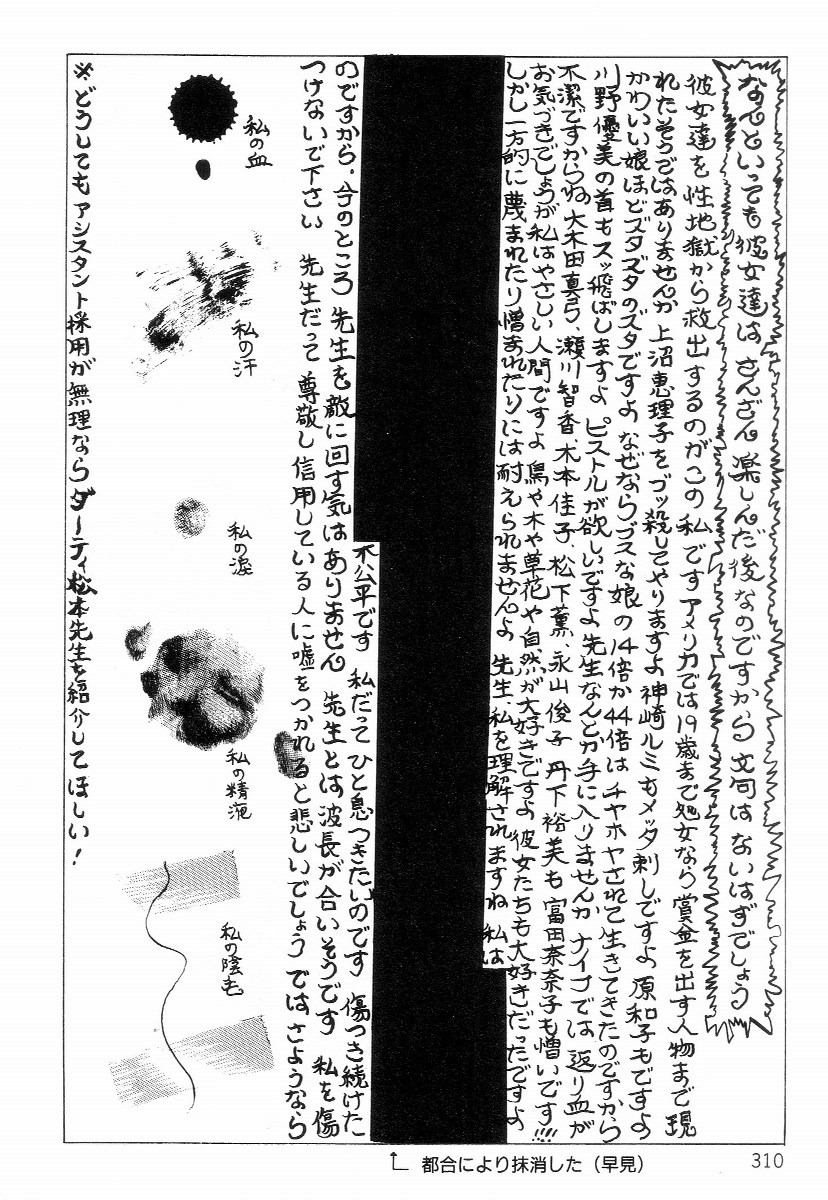 なんといっても彼女達は さんざん 楽しんだ後なのですから 文句はないはずでしょう
彼女達を性地獄から救出するのがこの私です アメリカでは19歳まで処女なら賞金を出す人物まで現
れたそうではありませんか 上沼恵理子をブッ殺してやりますよ 神崎ルミもメッタ刺しですよ 原和子もですよ
かわいい娘ほどズタズタのズタですよ なぜならブスな娘の14倍か44倍は チヤホヤされて生きてきたのですから
川野優美の首もスッ飛ばしますよ ピストルが欲しいですよ 先生なんとか手に入りませんか ナイフでは 返り血が
不潔ですからね 大木田真弓、瀬川智香、木本佳子、松下薫、永山俊子 丹下裕美も 富田奈奈子も憎いです!!!!
お気づきでしょうが私はやさしい人間ですよ 鳥や木や草花や自然が大好きですよ 彼女たちも大好きだったですよ
しかし一方的に蔑まれたり憎まれたりには耐えられませんよ 先生、私を理解されますね 私は
不公平です 私だって ひと息つきたいのです 傷つき続けた
のですから・今のところ 先生を敵に回す気はありません 先生とは波長が合いそうです 私を傷
つけないで下さい 先生だって 尊敬し信用している人に嘘をつかれると悲しいでしょう ではさようなら
私の血
私の汗
私の涙
私の精液
私の陰毛
※どうしてもアシスタント採用が無理ならダーティ松本先生を紹介してほしい！
都合により抹消した（早見）
310